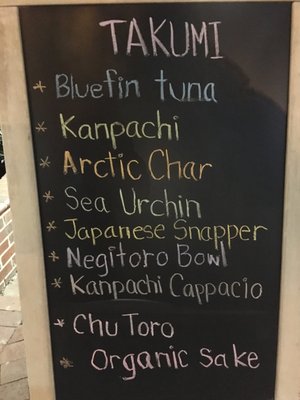 TAKUMI
* Bluefin tuna
* Kanpachi
* Arctic Char
* Sea Urchin
* Japanese Snapper
* Negitoro Bowl
* Kanpachi Cappacio
* Chu Toro
* Organic Sake